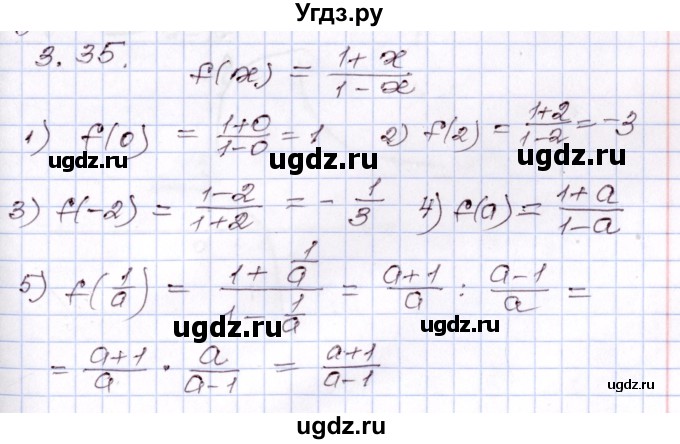 Угдз.ру
3.35. f(x) = (1+x)/(1-x)
1) f(0) = (1+0)/(1-0) = 1 2) f(2) = (1+2)/(1-2) = -3
ugdz.ru ugdz.ru ugdz.ru
3) f(-2) = (1-2)/(1+2) = - 1/3 4) f(a) = (1+a)/(1-a)
ugdz.ru ugdz.ru
5) f(1/a) = (1+1/a)/(1-1/a) = (a+1)/a : (a-1)/a =
ugdz.ru ugdz.ru
= (a+1)/a · a/(a-1) = (a+1)/(a-1)
ugdz.ru
ugdz.ru